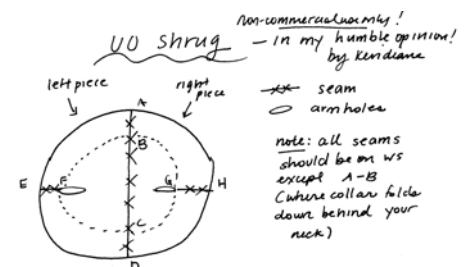 non-commercial use only!
UO shrug
- in my humble opinion!
by Kendiane
left piece
right
piece
seam
armholes
A
B
E
F
G
H
C
D
note: all seams
should be on WS
except A-B
(where collar folds
down behind your
neck)